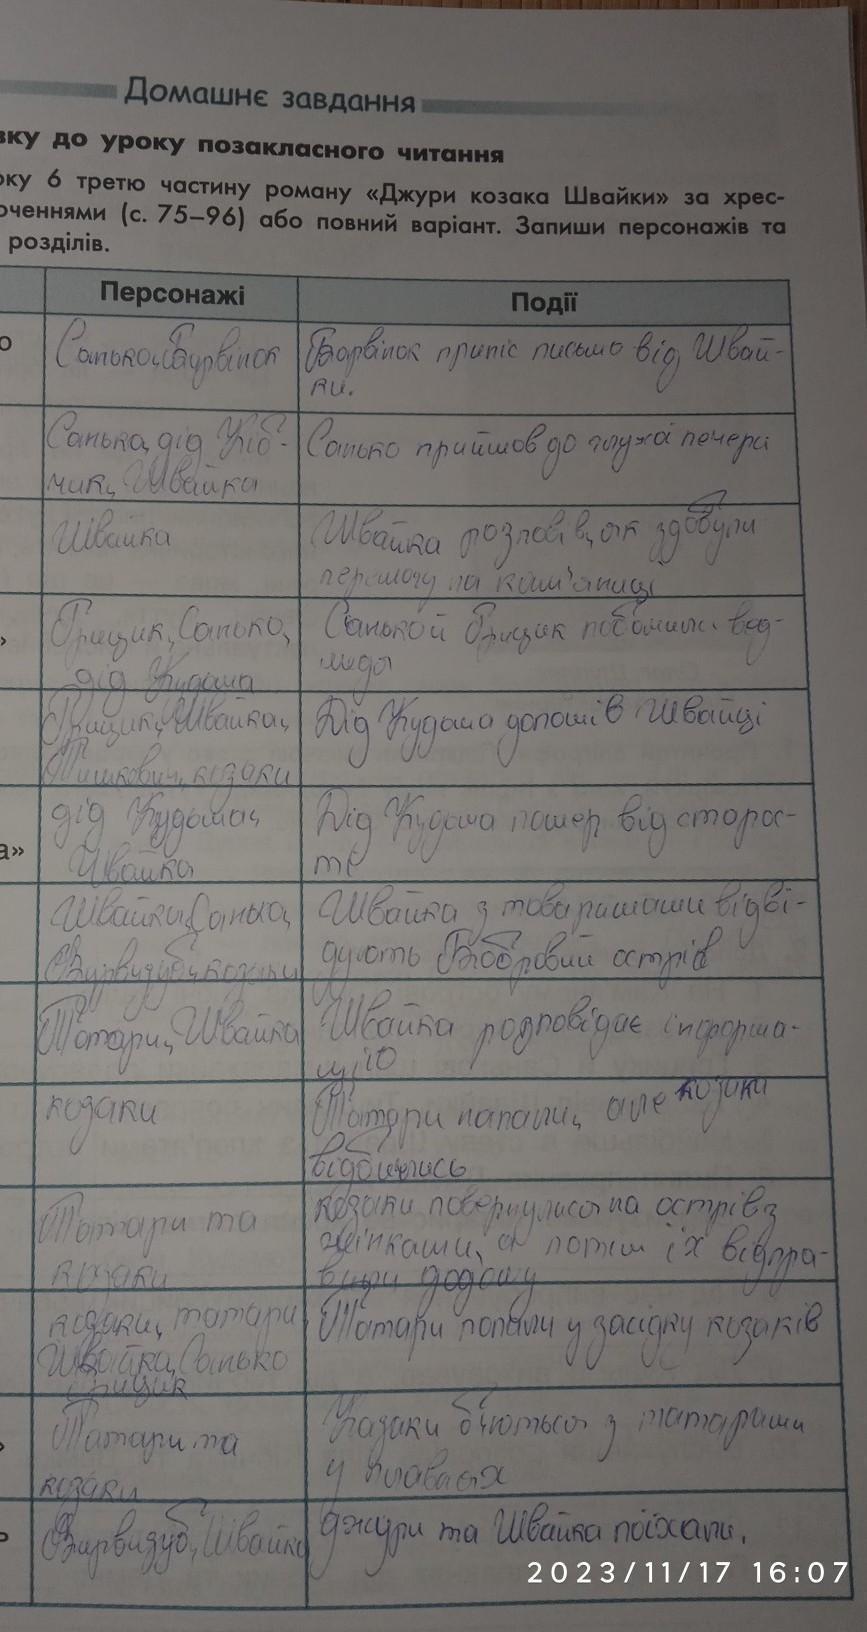 Домашнє завдання
вку до уроку позакласного читання
оку 6 третю частину роману «Джури козака Швайки» за хрес-
оченнями (с. 75–96) або повний варіант. Запиши персонажів та
розділів.
Персонажі
Події
о
Санько, Барвінок
Барвінок приніс письмо від Швай-
ки.
Санько, дід Кіб-
чик, Швайка
Санько прийшов до чужої печери
Швайка
Швайка розповів, як здобули
перемогу на кам'яниці
»
Грицик, Санько,
дід Кудьма
Санько й Грицик побачили вед-
мидя
Грицик, Швайка,
Тишкович, козаки
Дід Кудьма допоміг Швайці
а»
дід Кудьма,
Швайка
Дід Кудьма помер від старос-
ті
Швайка, Санько,
Вирвизуб, козаки
Швайка з товаришами відві-
дують Бобровий острів
Татари, Швайка
Швайка розповідає інформа-
цію
козаки
Татари напали, але козаки
відбились
Татари та
козаки
козаки повернулися на острів з
жінками, а потім їх відпра-
вили додому
козаки, татари
Швайка, Санько
Грицик
Татари попали у засідку козаків
»
Татари та
козаки
Казаки б'ються з татарами
у плавнях
ь
Вирвизуб, Швайка
джури та Швайка поїхали.
2023/11/17 16:07